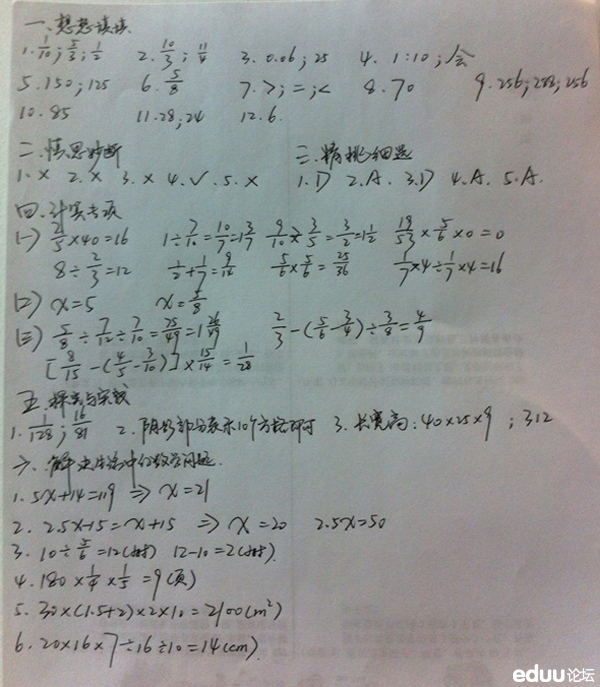 一、想想填填
1. 1/10 ; 5/3 ; 1/2  2. 10/3 ; 11/4  3. 0.06 ; 25  4. 1:10 ;
5. 150 ; 125  6. 5/8  7. > ; = ; <  8. 70  9. 256 ; 288 ; 256
10. 85  11. 28 ; 24  12. 6.
二、慎思妙断  三、精挑细选
1. × 2. × 3. × 4. √ . 5. ×  1. D 2. A . 3. D 4. A. 5. A.
四、计算专项
(一) 2/5 × 40 = 16  1 ÷ 7/10 = 10/7 = 1 3/7  9/10 ÷ 3/5 = 3/2 = 1 1/2  18/53 × 5/6 × 0 = 0
8 ÷ 2/3 = 12  1/2 + 1/7 = 9/14  5/6 × 5/6 = 25/36  1/7 × 4 ÷ 1/7 × 4 = 16
(二) x = 5  x = 5/8
(三) 5/8 ÷ 7/12 ÷ 7/10 = 75/49 = 1 26/49  2/3 - (5/6 - 3/4) ÷ 3/8 = 4/9
[8/15 - (4/5 - 3/10)] × 15/14 = 1/28
五、探究与实践
1. 1/128 ; 16/81  2. 阴影部分表示10个方格即可  3. 长宽高: 40×25×9 ; 312
六、解决生活中的数学问题.
1. 5x+14=119 ⇒ x=21
2. 2.5x-15=x+15 ⇒ x=20  2.5x=50
3. 10 ÷ 5/6 = 12(时)  12-10=2(时).
4. 180 × 1/4 × 1/5 = 9(页)
5. 30×(1.5+2)×2×10=2100(m²)
6. 20×16×7÷16÷10=14(cm).
eduu论坛